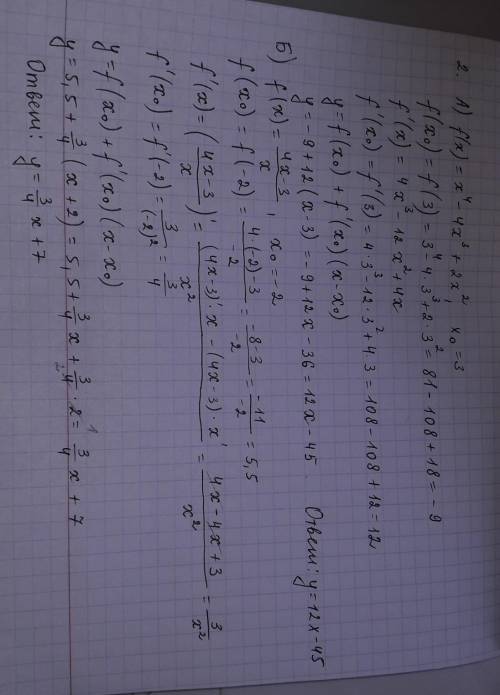 2. А) f'(x) = x⁴ - 4x³ + 2x², x₀ = 3
f(x₀) = f(3) = 3⁴ - 4·3³ + 2·3² = 81 - 108 + 18 = -9
f'(x) = 4x³ - 12x² + 4x
f'(x₀) = f'(3) = 4·3³ - 12·3² + 4·3 = 108 - 108 + 12 = 12
y = f(x₀) + f'(x₀)(x - x₀)
y = -9 + 12(x - 3) = -9 + 12x - 36 = 12x - 45 Ответ: y = 12x - 45
Б) f(x) = (4x-3)/x, x₀ = -2
f(x₀) = f(-2) = (4·(-2)-3)/-2 = (-8-3)/-2 = -11/-2 = 5,5
f'(x) = ((4x-3)/x)' = ((4x-3)'x - (4x-3)·x')/x² = (4x-4x+3)/x² = 3/x²
f'(x₀) = f'(-2) = 3/(-2)² = 3/4
y = f(x₀) + f'(x₀)(x - x₀)
y = 5,5 + 3/4 (x+2) = 5,5 + 3/4 x + 3/4 · 2 = 3/4 x + 7
Ответ: y = 3/4 x + 7